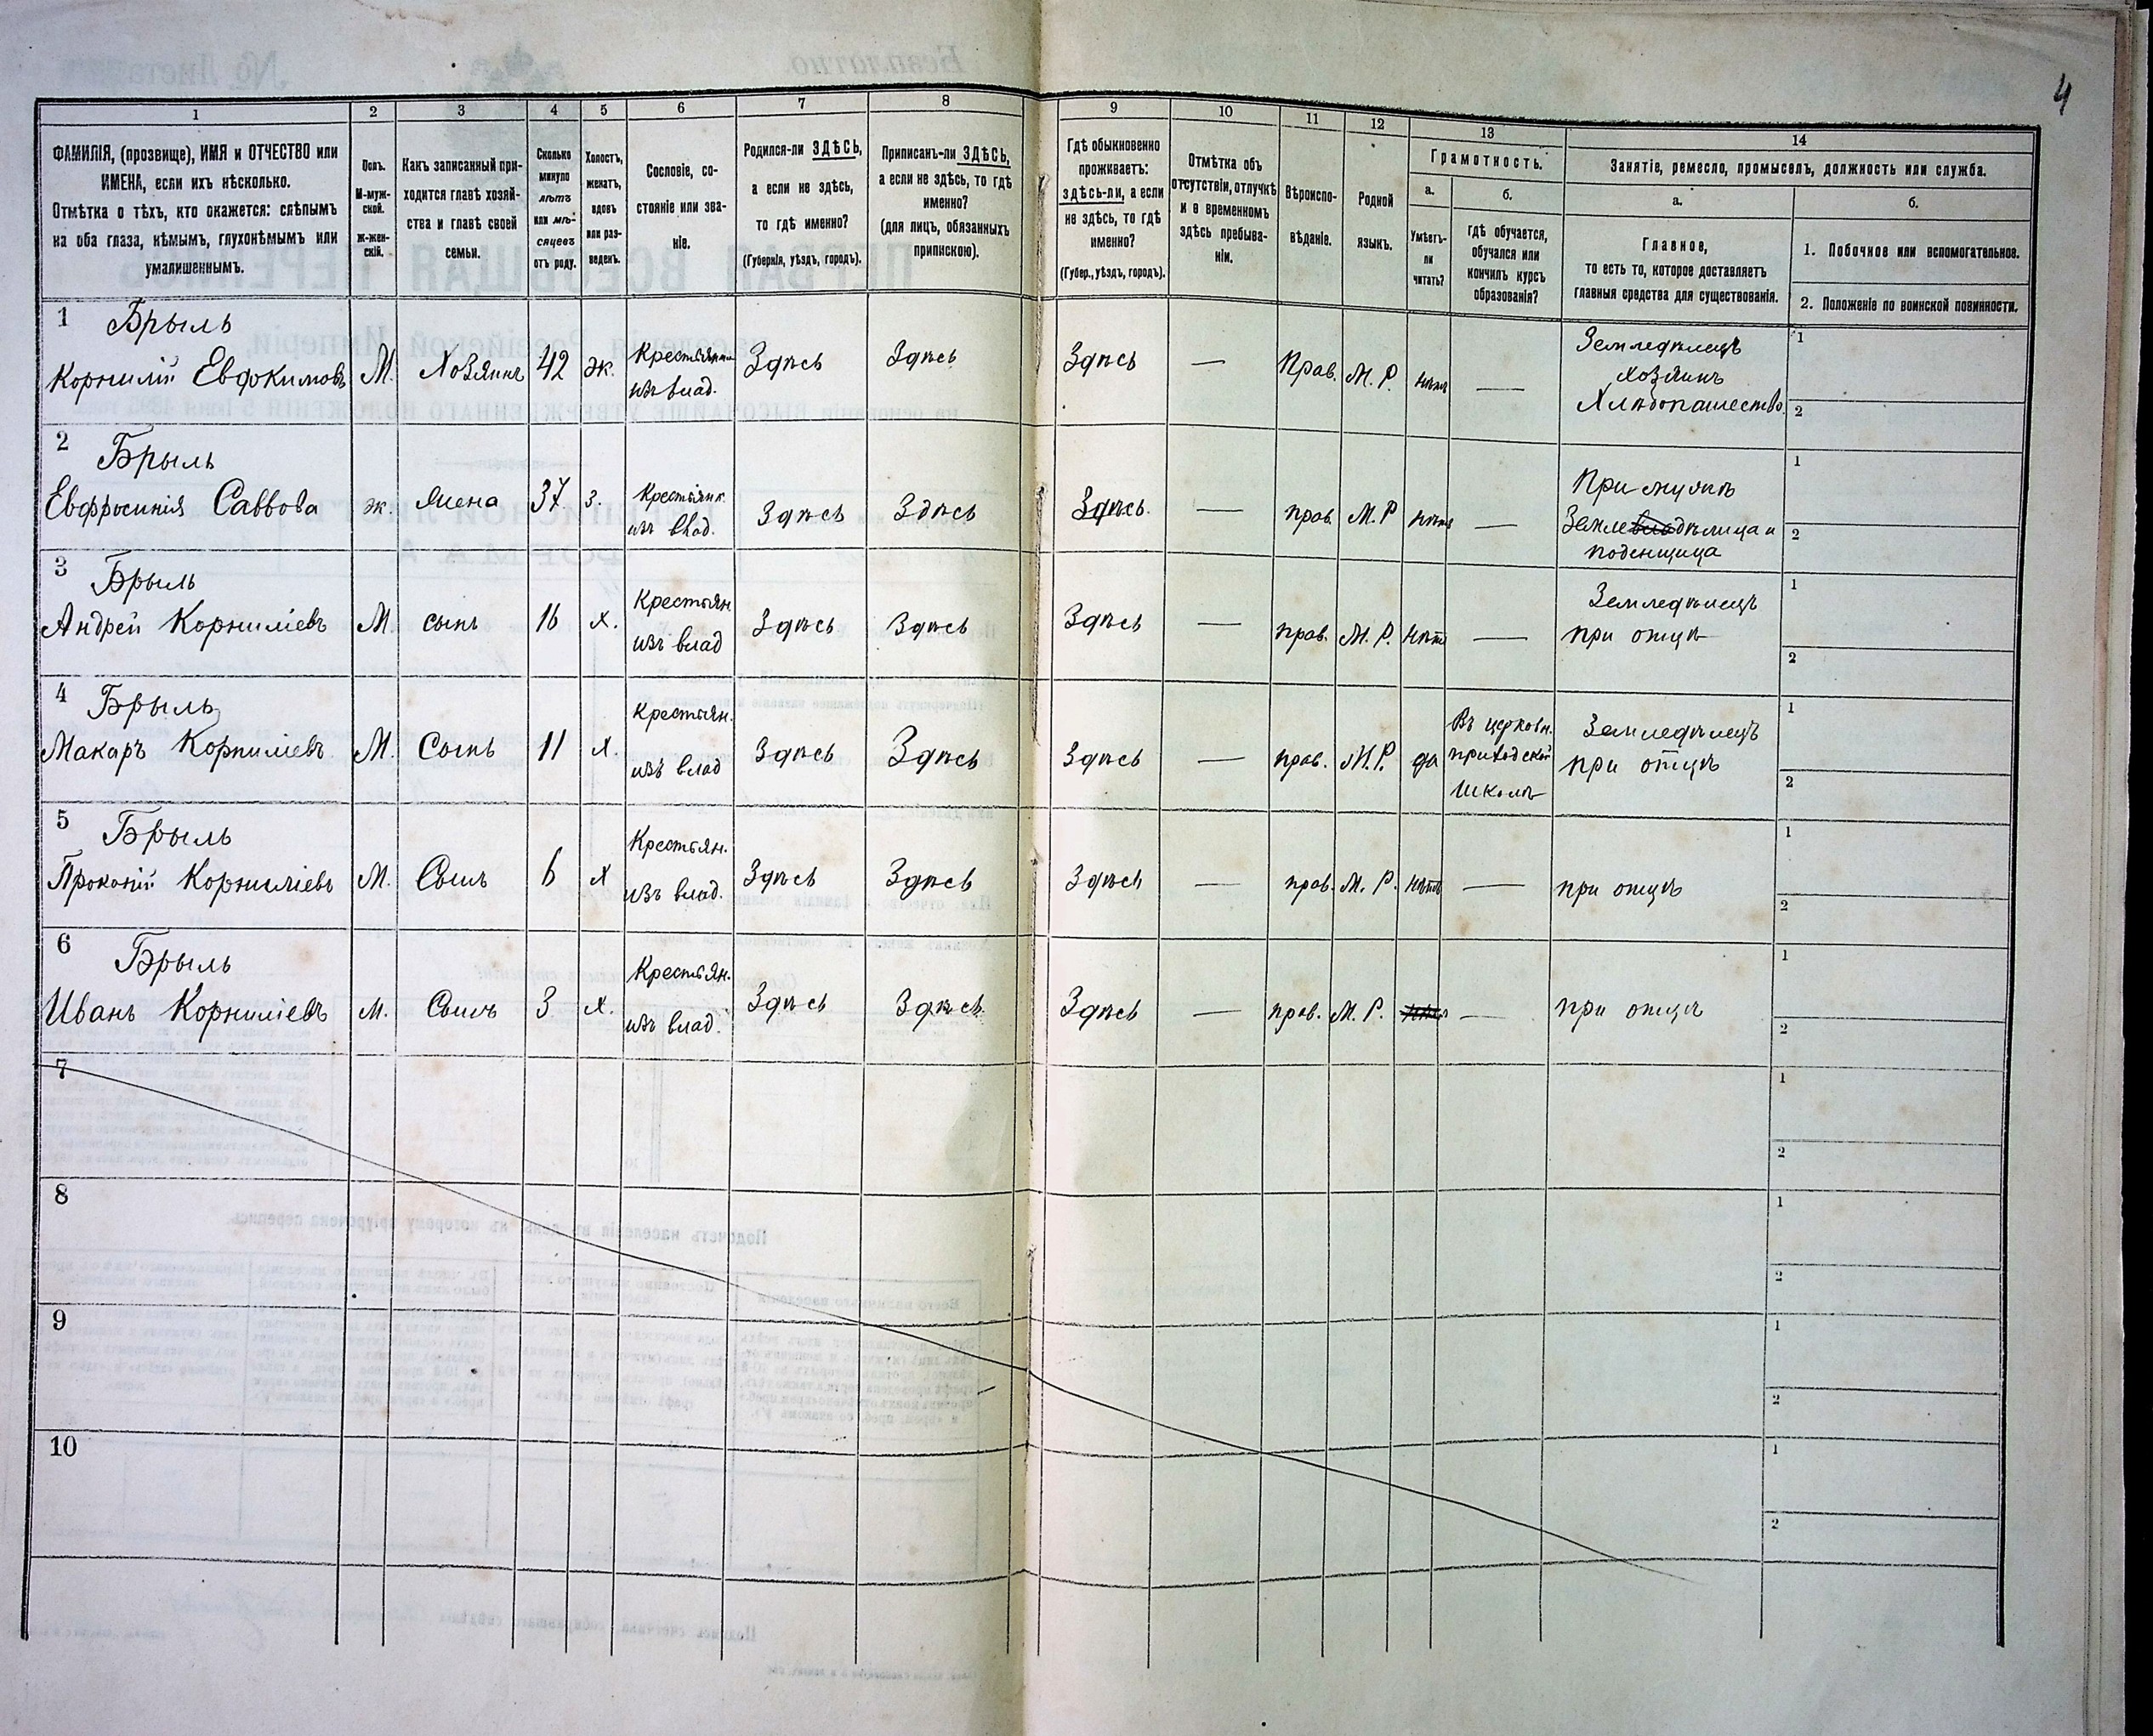 4
1 2 3 4 5 6 7 8 9 10 11 12 13 14
ФАМИЛІЯ, (прозвище), ИМЯ и ОТЧЕСТВО или
ИМЕНА, если ихъ нѣсколько.
Отмѣтка о тѣхъ, кто окажется: слѣпымъ
на оба глаза, нѣмымъ, глухонѣмымъ или
умалишеннымъ.
Полъ.
М-муж-
ской.
Ж-жен-
скій.
Какъ записанный при-
ходится главѣ хозяй-
ства и главѣ своей
семьи.
Сколько
минуло
лѣтъ
или мѣ-
сяцевъ
отъ роду.
Холостъ,
женатъ,
вдовъ
или раз-
веденъ.
Сословіе, со-
стояніе или зва-
ніе.
Родился-ли ЗДѢСЬ,
а если не здѣсь,
то гдѣ именно?
(Губернія, уѣздъ, городъ).
Приписанъ-ли ЗДѢСЬ,
а если не здѣсь, то гдѣ
именно?
(для лицъ, обязанныхъ
припискою).
Гдѣ обыкновенно
проживаетъ:
здѣсь-ли, а если
не здѣсь, то гдѣ
именно?
(Губер., уѣздъ, городъ).
Отмѣтка объ
отсутствіи, отлучкѣ
и о временномъ
здѣсь пребыва-
ніи.
Вѣроиспо-
вѣданіе.
Родной
языкъ.
Грамотность.
а.
Умѣетъ-
ли
читать?
б.
гдѣ обучается,
обучался или
кончилъ курсъ
образованія?
Занятіе, ремесло, промыселъ, должность или служба.
а.
Главное,
то есть то, которое доставляетъ
главныя средства для существованія.
б.
1. Побочное или вспомогательное.
2. Положеніе по воинской повинности.
1 Брыль
Корнилій Евфокимовъ М. Хозяинъ 42 ж. Крестьянин
изъ влад. Здѣсь Здѣсь Здѣсь — Прав. М. Р. нѣтъ —
Земледѣлецъ
хозяинъ
Хлѣбопашество
1
2
2 Брыль
Евфросинія Саввова ж. Жена 37 з. Крестьянк.
изъ влад. Здѣсь Здѣсь Здѣсь. — прав. М. Р нѣтъ —
При мужѣ
Землевладѣлица и
поденщица
1
2
3 Брыль
Андрей Корниліевъ М. сынъ 16 х. Крестьян
изъ влад Здѣсь Здѣсь Здѣсь — прав. М. Р. Нѣтъ —
Земледѣлецъ
при отцѣ
1
2
4 Брыль
Макаръ Корниліевъ М. Сынъ 11 х. Крестьян.
изъ влад Здѣсь Здѣсь Здѣсь — прав. М. Р. да
Въ церковн.
приходской
школѣ
Земледѣлецъ
при отцѣ
1
2
5 Брыль
Прокопій Корниліевъ М. Сынъ 6 х Крестьян.
изъ влад. Здѣсь Здѣсь Здѣсь — прав. М. Р. нѣтъ —
при отцѣ
1
2
6 Брыль
Иванъ Корниліевъ М. Сынъ 3 х. Крестьян.
изъ влад. Здѣсь Здѣсь Здѣсь — прав. М. Р. нѣтъ —
при отцѣ
1
2
7
1
2
8
1
2
9
1
2
10
1
2